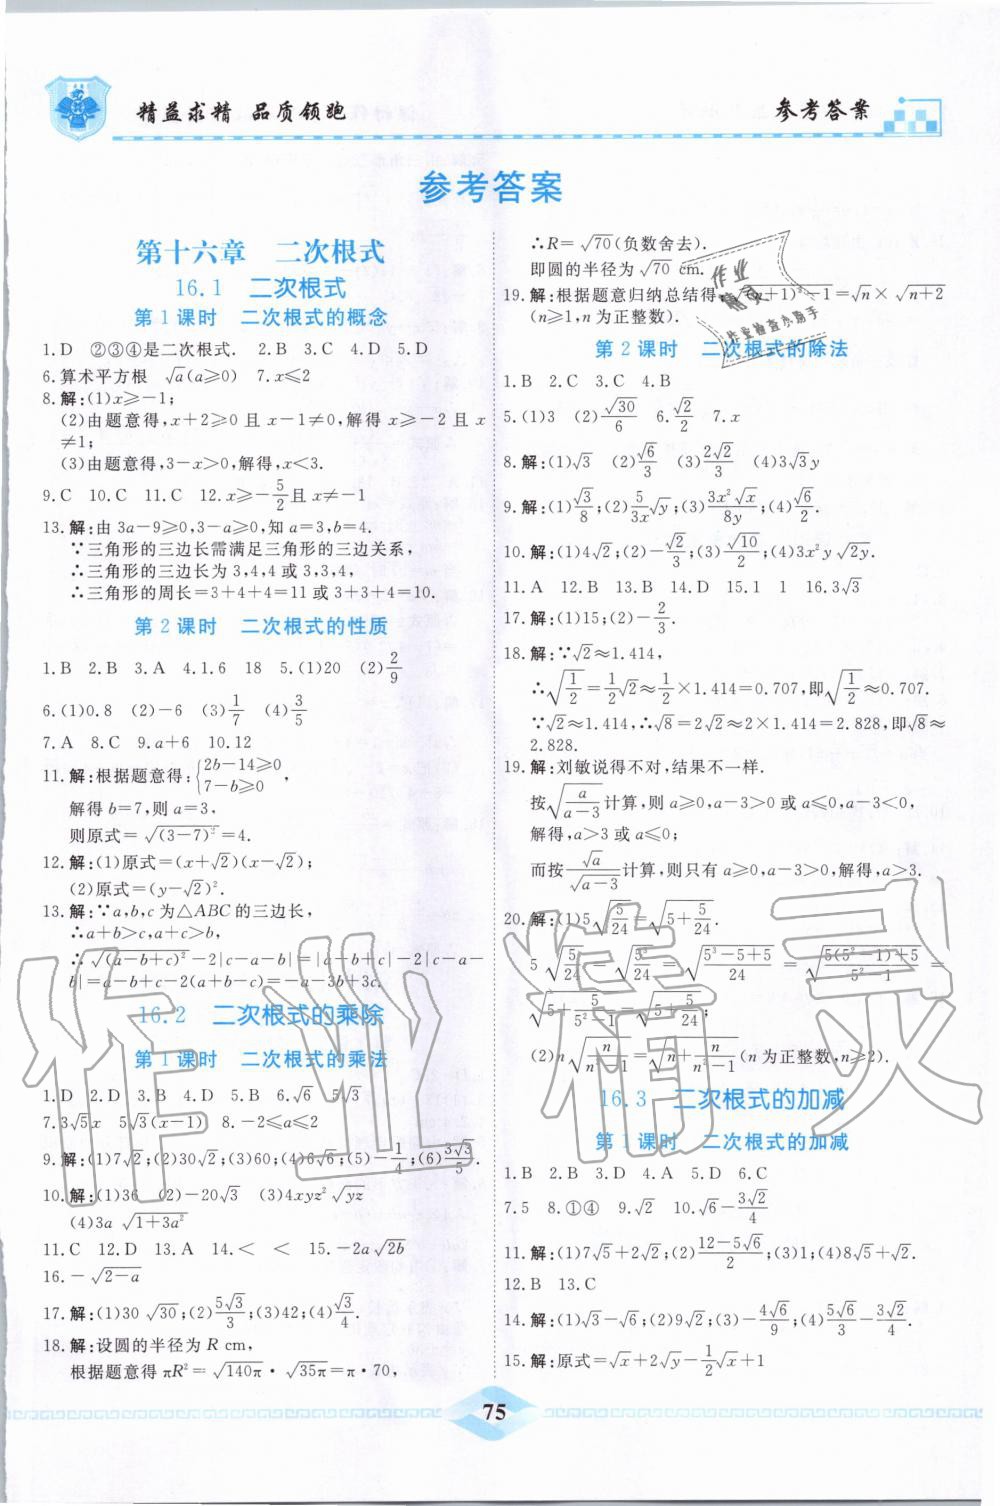 精益求精 品质领跑
参考答案
参考答案
第十六章 二次根式
16.1 二次根式
第1课时 二次根式的概念
1.D ②③④是二次根式. 2.B 3.C 4.D 5.D
6.算术平方根 √a(a≥0) 7.x≤2
8.解:(1)x≥-1;
(2)由题意得,x+2≥0 且 x-1≠0,解得 x≥-2 且 x
≠1;
(3)由题意得,3-x>0,解得,x<3.
9.C 10.C 11.C 12.x≥-5/2且x≠-1
13.解:由 3a-9≥0,3-a≥0,知 a=3,b=4.
∵三角形的三边长需满足三角形的三边关系,
∴三角形的三边长为 3,4,4 或 3,3,4,
∴三角形的周长=3+4+4=11 或 3+3+4=10.
第2课时 二次根式的性质
1.B 2.B 3.A 4.1.6 18 5.(1)20 (2)2/9
6.(1)0.8 (2)-6 (3)1/7 (4)3/5
7.A 8.C 9.a+6 10.12
11.解:根据题意得:{2b-14≥0
7-b≥0,
解得 b=7,则 a=3,
则原式=√(3-7)²=4.
12.解:(1)原式=(x+√2)(x-√2);
(2)原式=(y-√2)².
13.解:∵a,b,c 为△ABC 的三边长,
∴a+b>c,a+c>b,
∴√(a-b+c)²-2|c-a-b|=|a-b+c|-2|c-a-
b|=a-b+c-2(a+b-c)=-a-3b+3c.
16.2 二次根式的乘除
第1课时 二次根式的乘法
1.D 2.D 3.B 4.D 5.B 6.√6 5√3
7.3√5x 5√3(x-1) 8.-2≤a≤2
9.解:(1)7√2;(2)30√2;(3)60;(4)6√6;(5)-1/4;(6)3√3/5.
10.解:(1)36 (2)-20√3 (3)4xyz²√yz
(4)3a√1+3a²
11.C 12.D 13.A 14.< < 15.-2a√2b
16.-√2-a
17.解:(1)30√30;(2)5√3/3;(3)42;(4)√3/4.
18.解:设圆的半径为 R cm,
根据题意得 πR²=√140π·√35π=π·70,
∴R=√70(负数舍去).
即圆的半径为√70 cm.
19.解:根据题意归纳总结得:√(n+1)²-1=√n×√n+2
(n≥1,n 为正整数).
第2课时 二次根式的除法
1.B 2.C 3.C 4.B
5.(1)3 (2)√30/6 6.√2/2 7.x
8.解:(1)√3 (2)√6/3 (3)2√2/3 (4)3√3y
9.解:(1)√3/8;(2)5/3x√y;(3)3x²√x/8y;(4)√6/2.
10.解:(1)4√2;(2)-√2/3;(3)√10/2;(4)3x²y√2y.
11.A 12.B 13.B 14.D 15.1 1 16.3√3
17.解:(1)15;(2)-2/3.
18.解:∵√2≈1.414,
∴√1/2=1/2√2≈1/2×1.414=0.707,即√1/2≈0.707.
∵√2≈1.414,∴√8=2√2≈2×1.414=2.828,即√8≈
2.828.
19.解:刘敏说得不对,结果不一样.
按√a/a-3计算,则 a≥0,a-3>0 或 a≤0,a-3<0,
解得,a>3 或 a≤0;
而按√a/√a-3计算,则只有 a≥0,a-3>0,解得,a>3.
20.解:(1)5√5/24=√5+5/24
5√5/24=√5³/24=√5³-5+5/24=√5(5²-1)+5/5²-1=
√5+5/5²-1=√5+5/24;
(2)n√n/n²-1=√n+n/n²-1(n 为正整数,n≥2).
16.3 二次根式的加减
第1课时 二次根式的加减
1.B 2.C 3.D 4.A 5.D 6.C
7.5 8.①④ 9.√2 10.√6-3√2/4
11.解:(1)7√5+2√2;(2)12-5√6/2;(3)1;(4)8√5+√2.
12.B 13.C
14.解:(1)√3-√6;(2)9√2;(3)-4√6/9;(4)5√6/3-3√2/4
15.解:原式=√x+2√y-1/2√x+1
75
作业精灵
作业
精灵
作业检查小助手